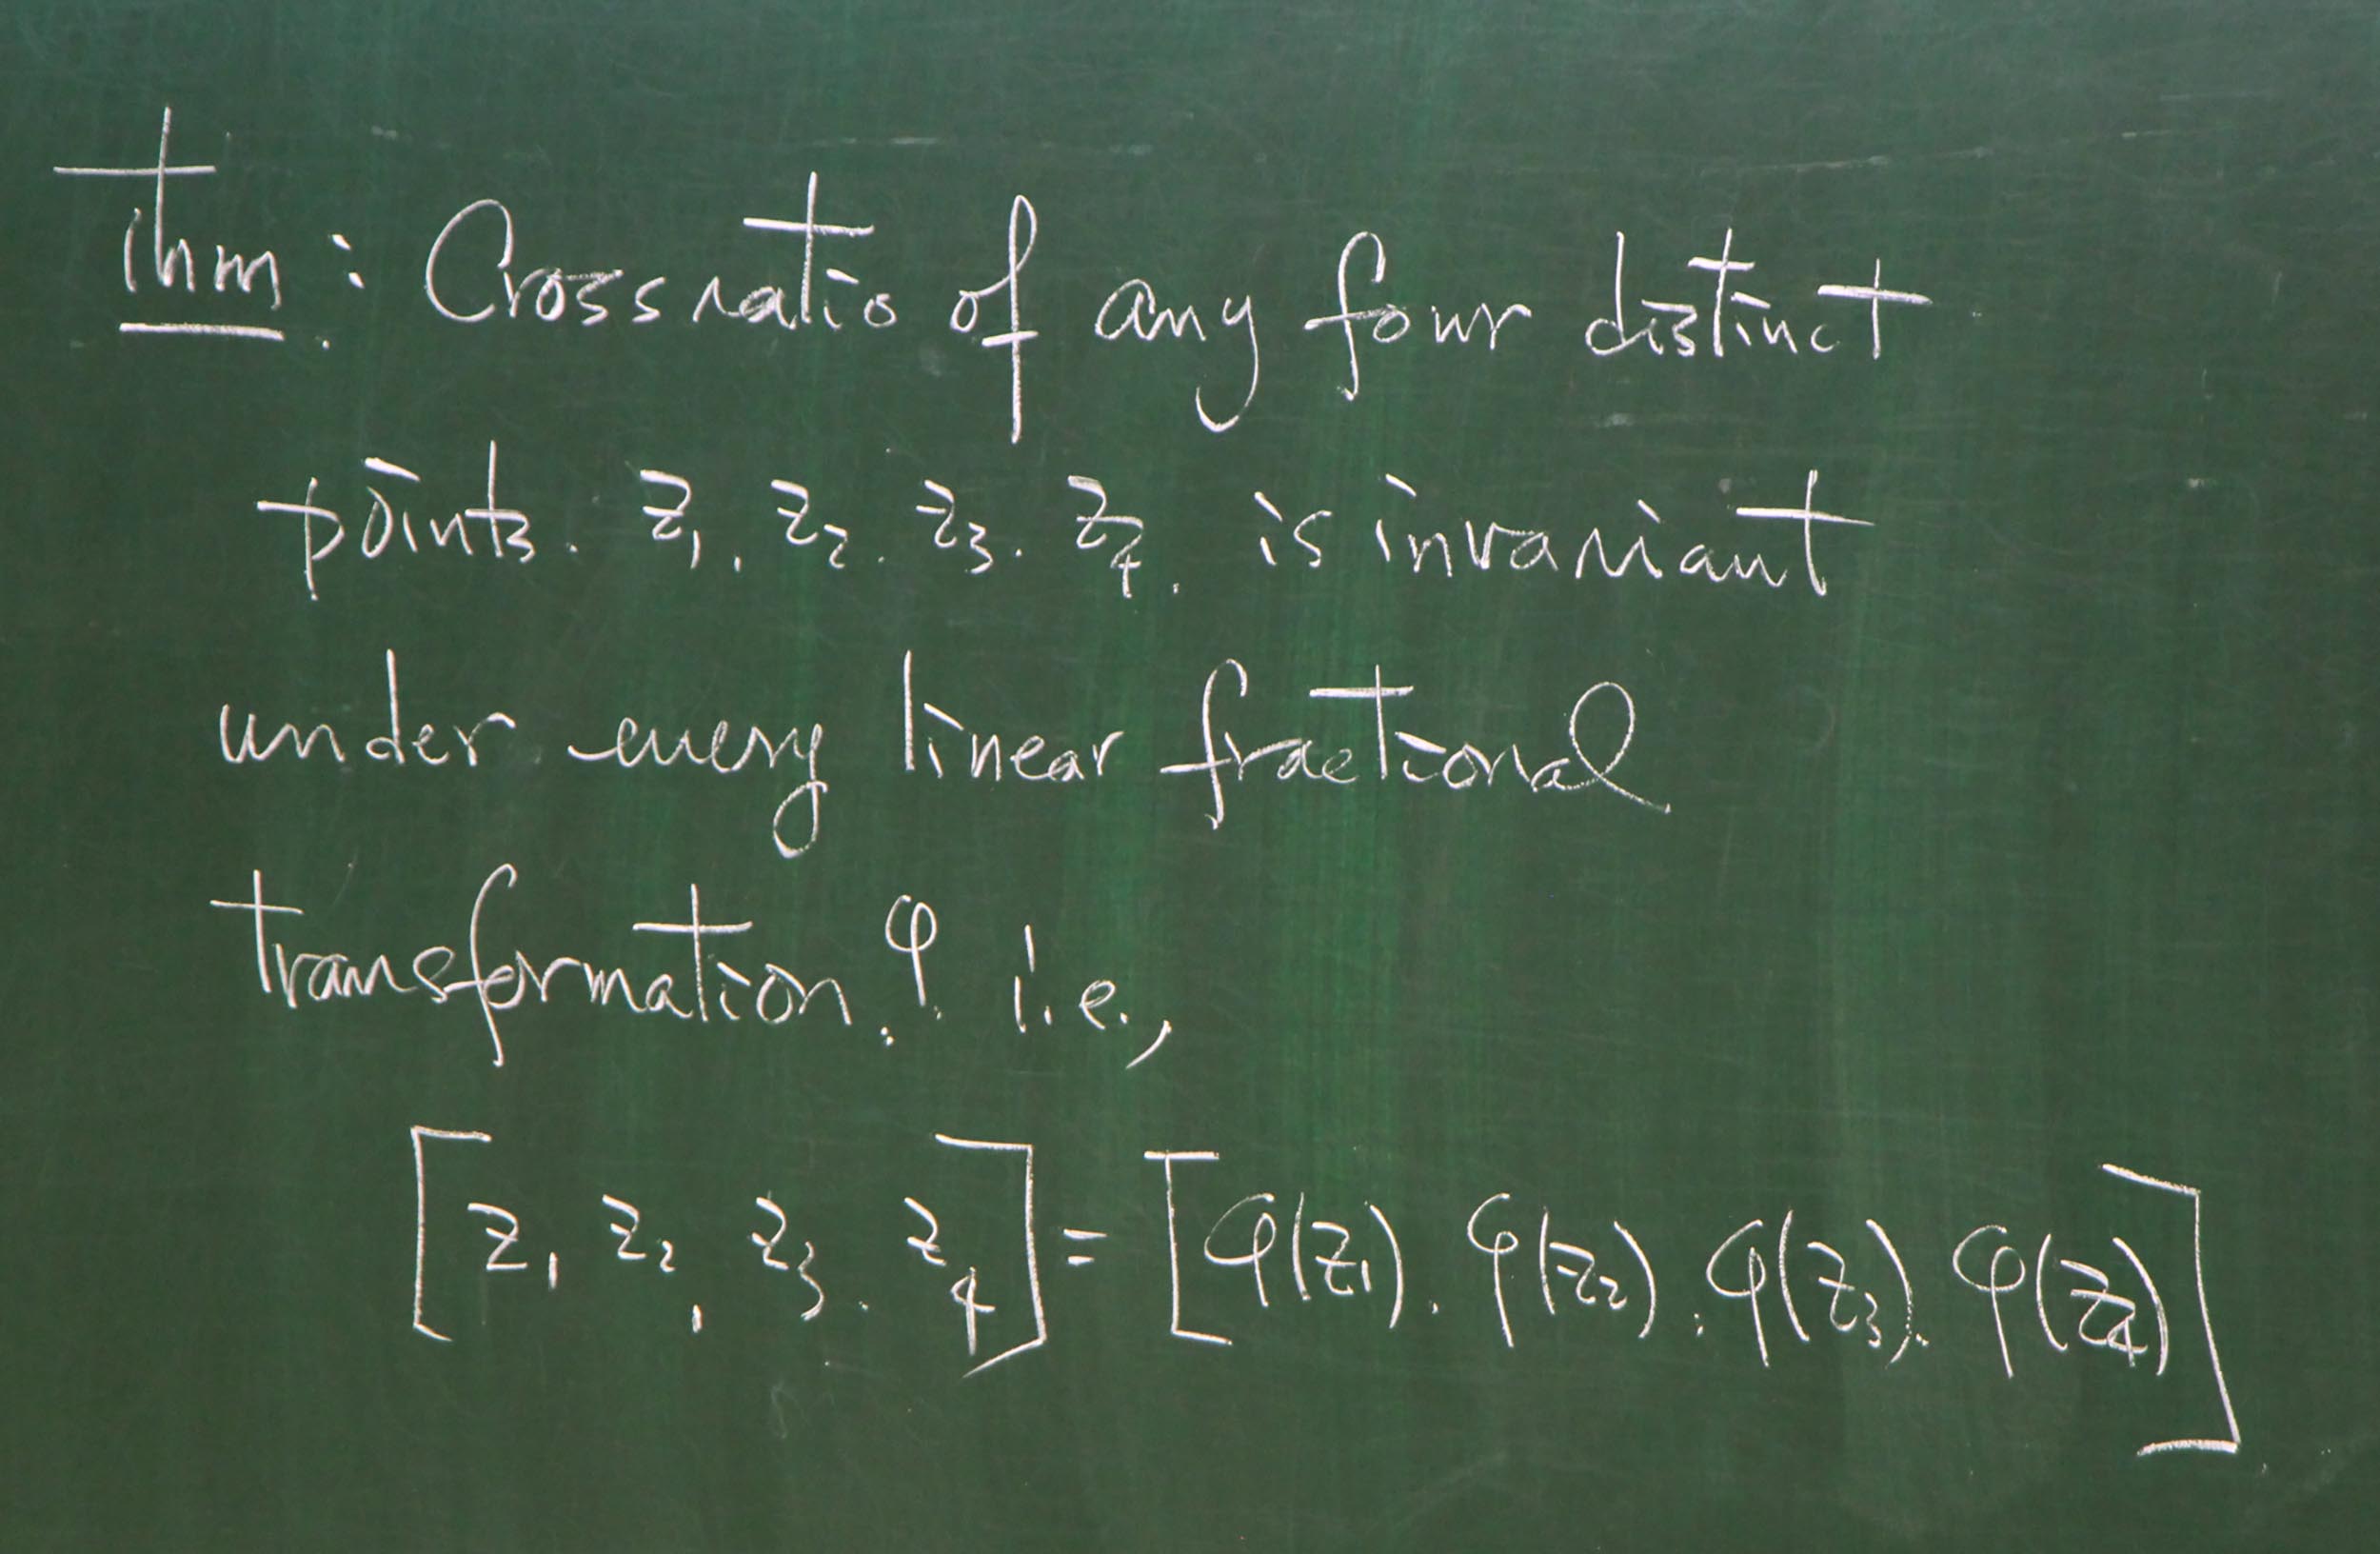 Thm: Cross ratio of any four distinct
points. z₁, z₂. z₃. z₄. is invariant
under every linear fractional
transformation. φ. i.e.,
[z₁ z₂, z₃. z₄] = [φ(z₁). φ(z₂). φ(z₃). φ(z₄)]